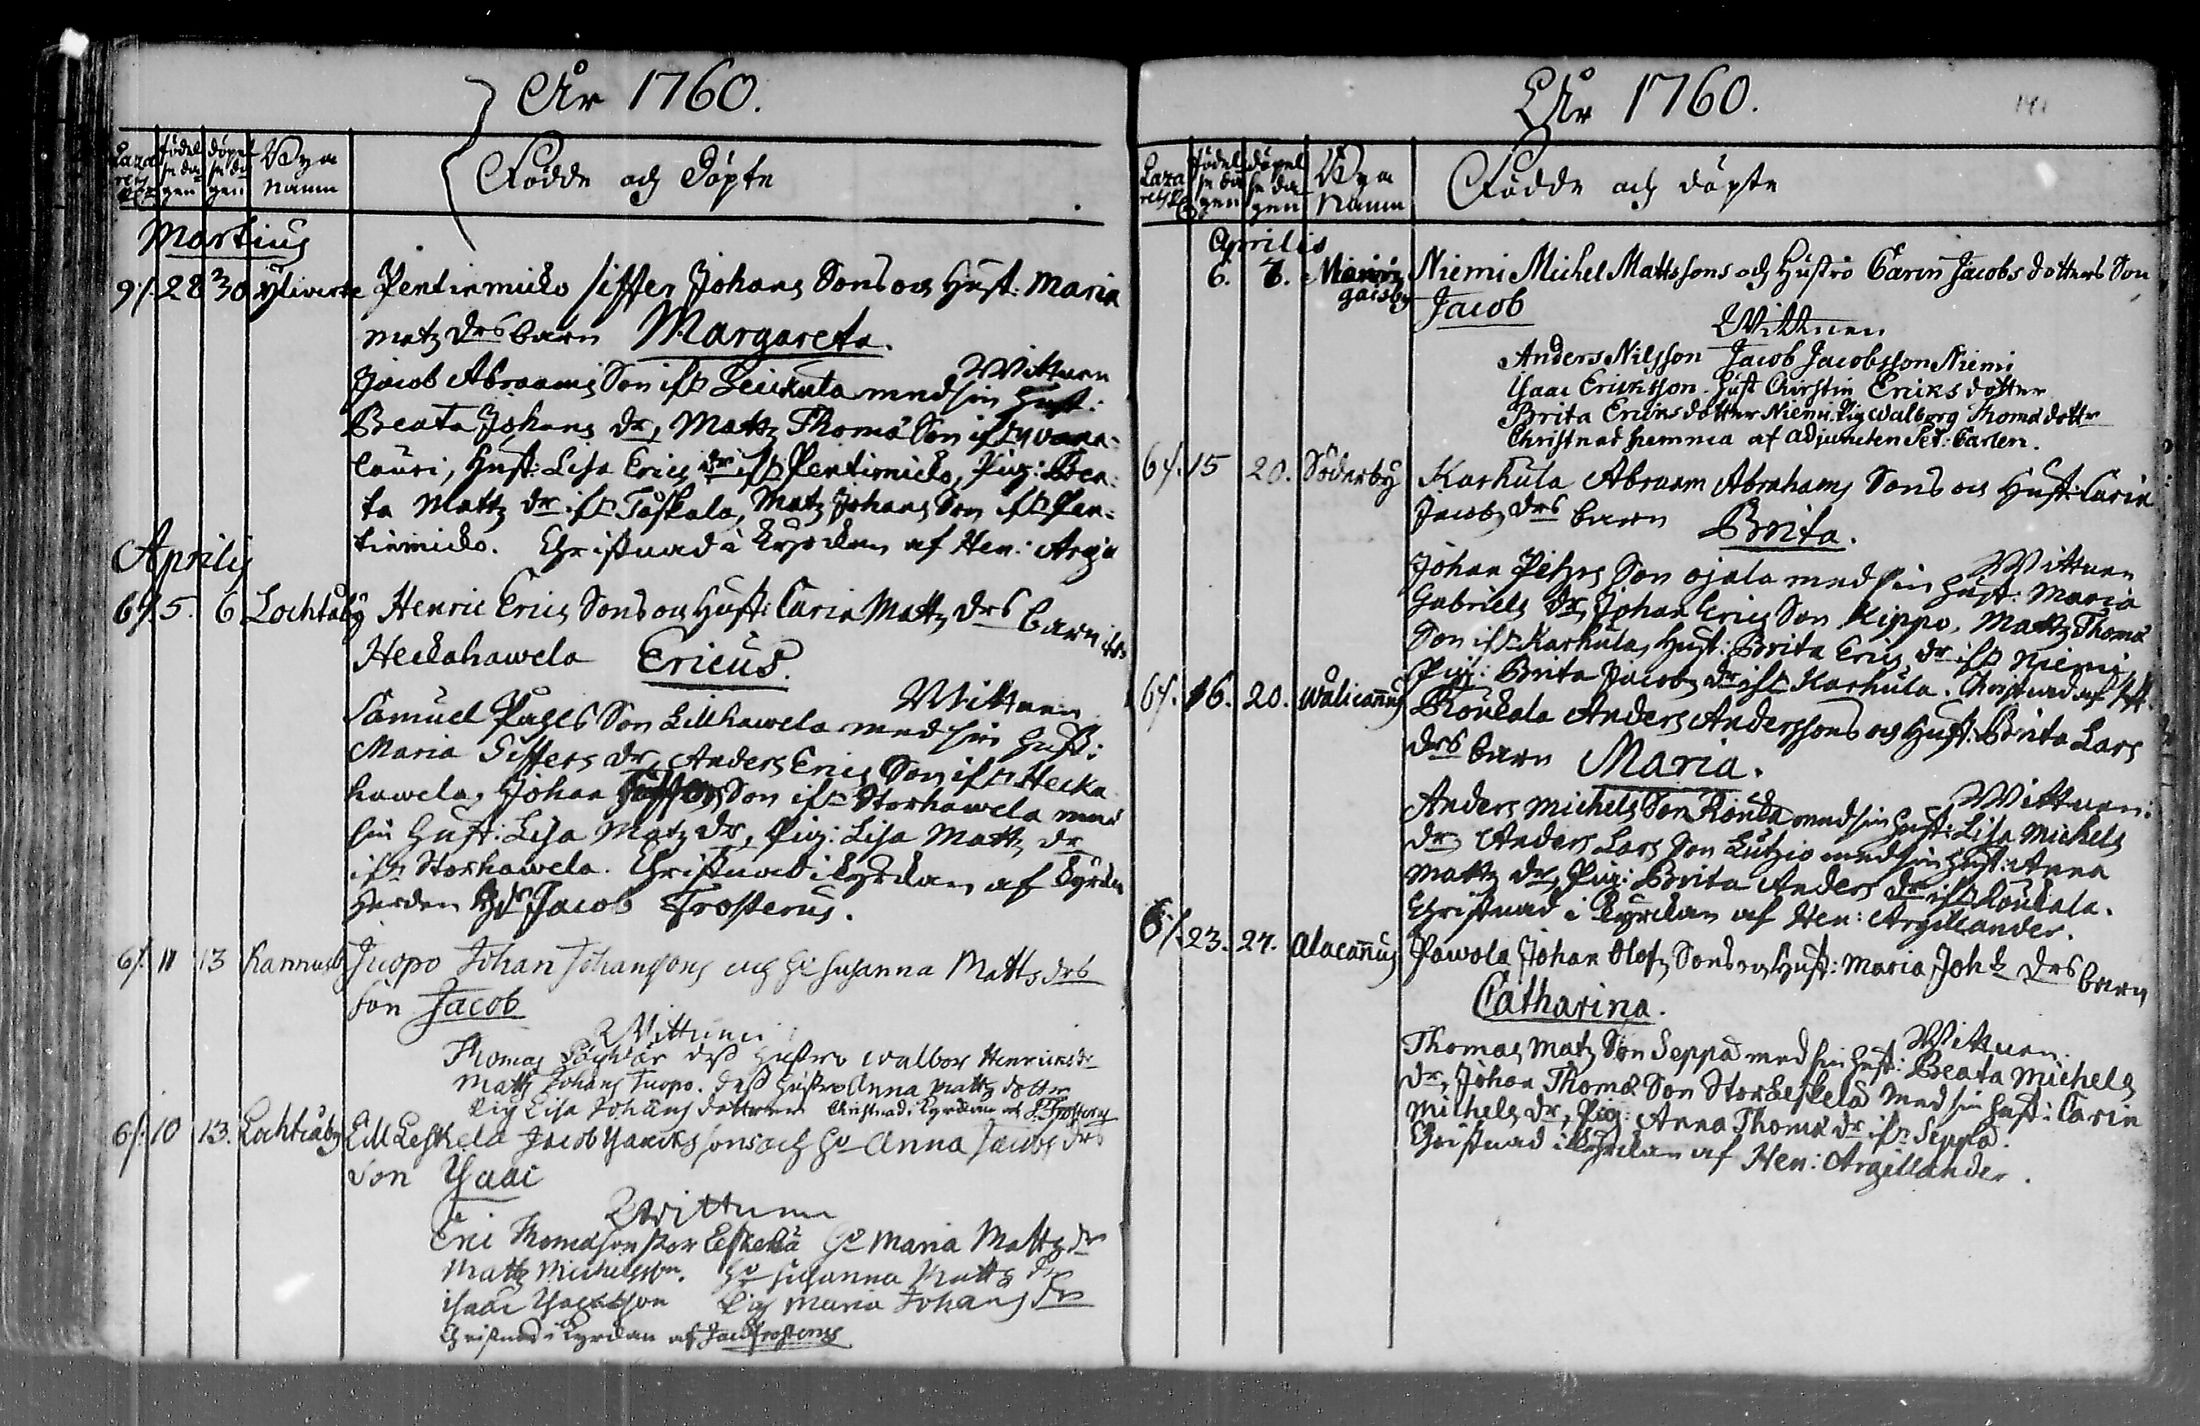 År 1760.
Laza
retz
födel
se da
gen
döpel
se da
gen
Bya
namn
Födde och Döpte
Martius
9/. 28 30 Yliveske Pentinmicko Siffer Johans Sons och Hust: Maria
Matz drs barn Margareta.
Wittnen
Jacob Abraams Son ifr. Leickuta med sin Hust:
Beata Johans dr, Matts Thomæ Son ifr
lauri, Hust: Lisa Erics dr ifr Pentimicko, Pig: Bea-
ta Matts dr ifr Taskala, Matz Johans Son ifr Pen-
tinmicko. Christnad i Kyrckan af Hen: Argil
Aprilis
6/. 5. 6 Lochtaby Henric Erics Sons och Hust: Carin Matts drs barn ifr
Heickahawela Ericus.
Wittnen
Samuel Påhls Son Lillhawela med sin Hust:
Maria Siffers dr, Anders Erics Son ifr Hecka
hawela, Johan Son ifr Storhawela med
sin Hust: Lisa Matz dr, Pig: Lisa Matts dr
ifr Storhawela. Christnad i Kyrckan af Kyrcko
Herden Hr Jacob Frosterus.
6/. 11 13 Kannusb Juopo Johan Johanssons och H: Susanna Matts drs
son Jacob
Wittnen
Thomas dess Hustru Walbor Henricsdr
Matts Johans Juopo. dess Hustru Anna Matts dotter
Pig Lisa Johans dotter Christnad i Kyrckan af J. Frosterus
6/. 10 13. Lochteåby Lill Leskelä Jacob Isaacssons och Ho Anna Jacobs drs
Son Isaac
Wittnen
Eric Thomæson stor Leskelä Ho Maria Matts dr
Matts Michelsson. Ho Susanna Matts dr
Isaac Isacsson Pig Maria Johans dr
Christnad i Kyrckan af Jac Frosterus
År 1760.
141
Laza
retz
födel
se da
gen
döpel
se da
gen
Bya
Namn
Födde och döpte
Aprilis
6. 7. Niemi Michel Mattssons och Hustro Carin Jacobs dotters Son
gaisby Jacob
Wittnen
Anders Nilsson Jacob Jacobsson Niemi
Isaac Ericksson. Hust Kirstin Ericks dotter
Brita Ericks dotter Niemi. Pig Walborg Thomæ dotter
Christnad hemma af Adjuncten Carlen.
6/. 15 20. Söderby Karhula Abraam Abrahams Sons och Hust: Carin
Jacobs drs barn Brita.
Wittnen
Johan Pehrs Son Ojala med sin Hust: Maria
Gabriels dr, Johan Erics Son Kippo, Matts Thomæ
Son ifr Karhula, Hust: Brita Erics dr ifr Niemi
Pig: Brita Jacobs dr ifr Karhula. Christnad af
6/. 16. 20. Walicannus Roukala Anders Anderssons och Hust: Brita Lars
drs barn Maria.
Wittnen:
Anders Michels Son Rouka med sin Hust: Lisa Michels
dr, Anders Lars Son Lutzio med sin Hust: Anna
Matts dr, Pig: Brita Anders dr ifr Roukala.
Christnad i Kyrckan af Hen: Argillander.
6/. 23. 27. Alacannus Pawola Johan Olofs Sons och Hust: Maria Joh: drs barn
Catharina.
Wittnen.
Thomas Matz Son Seppä med sin Hust: Beata Michels
dr, Johan Thomæ Son Storleskelä med sin Hust: Carin
Michels dr, Pig: Anna Thomæ dr ifr Seppä.
Christnad i Kyrckan af Hen: Argillander.